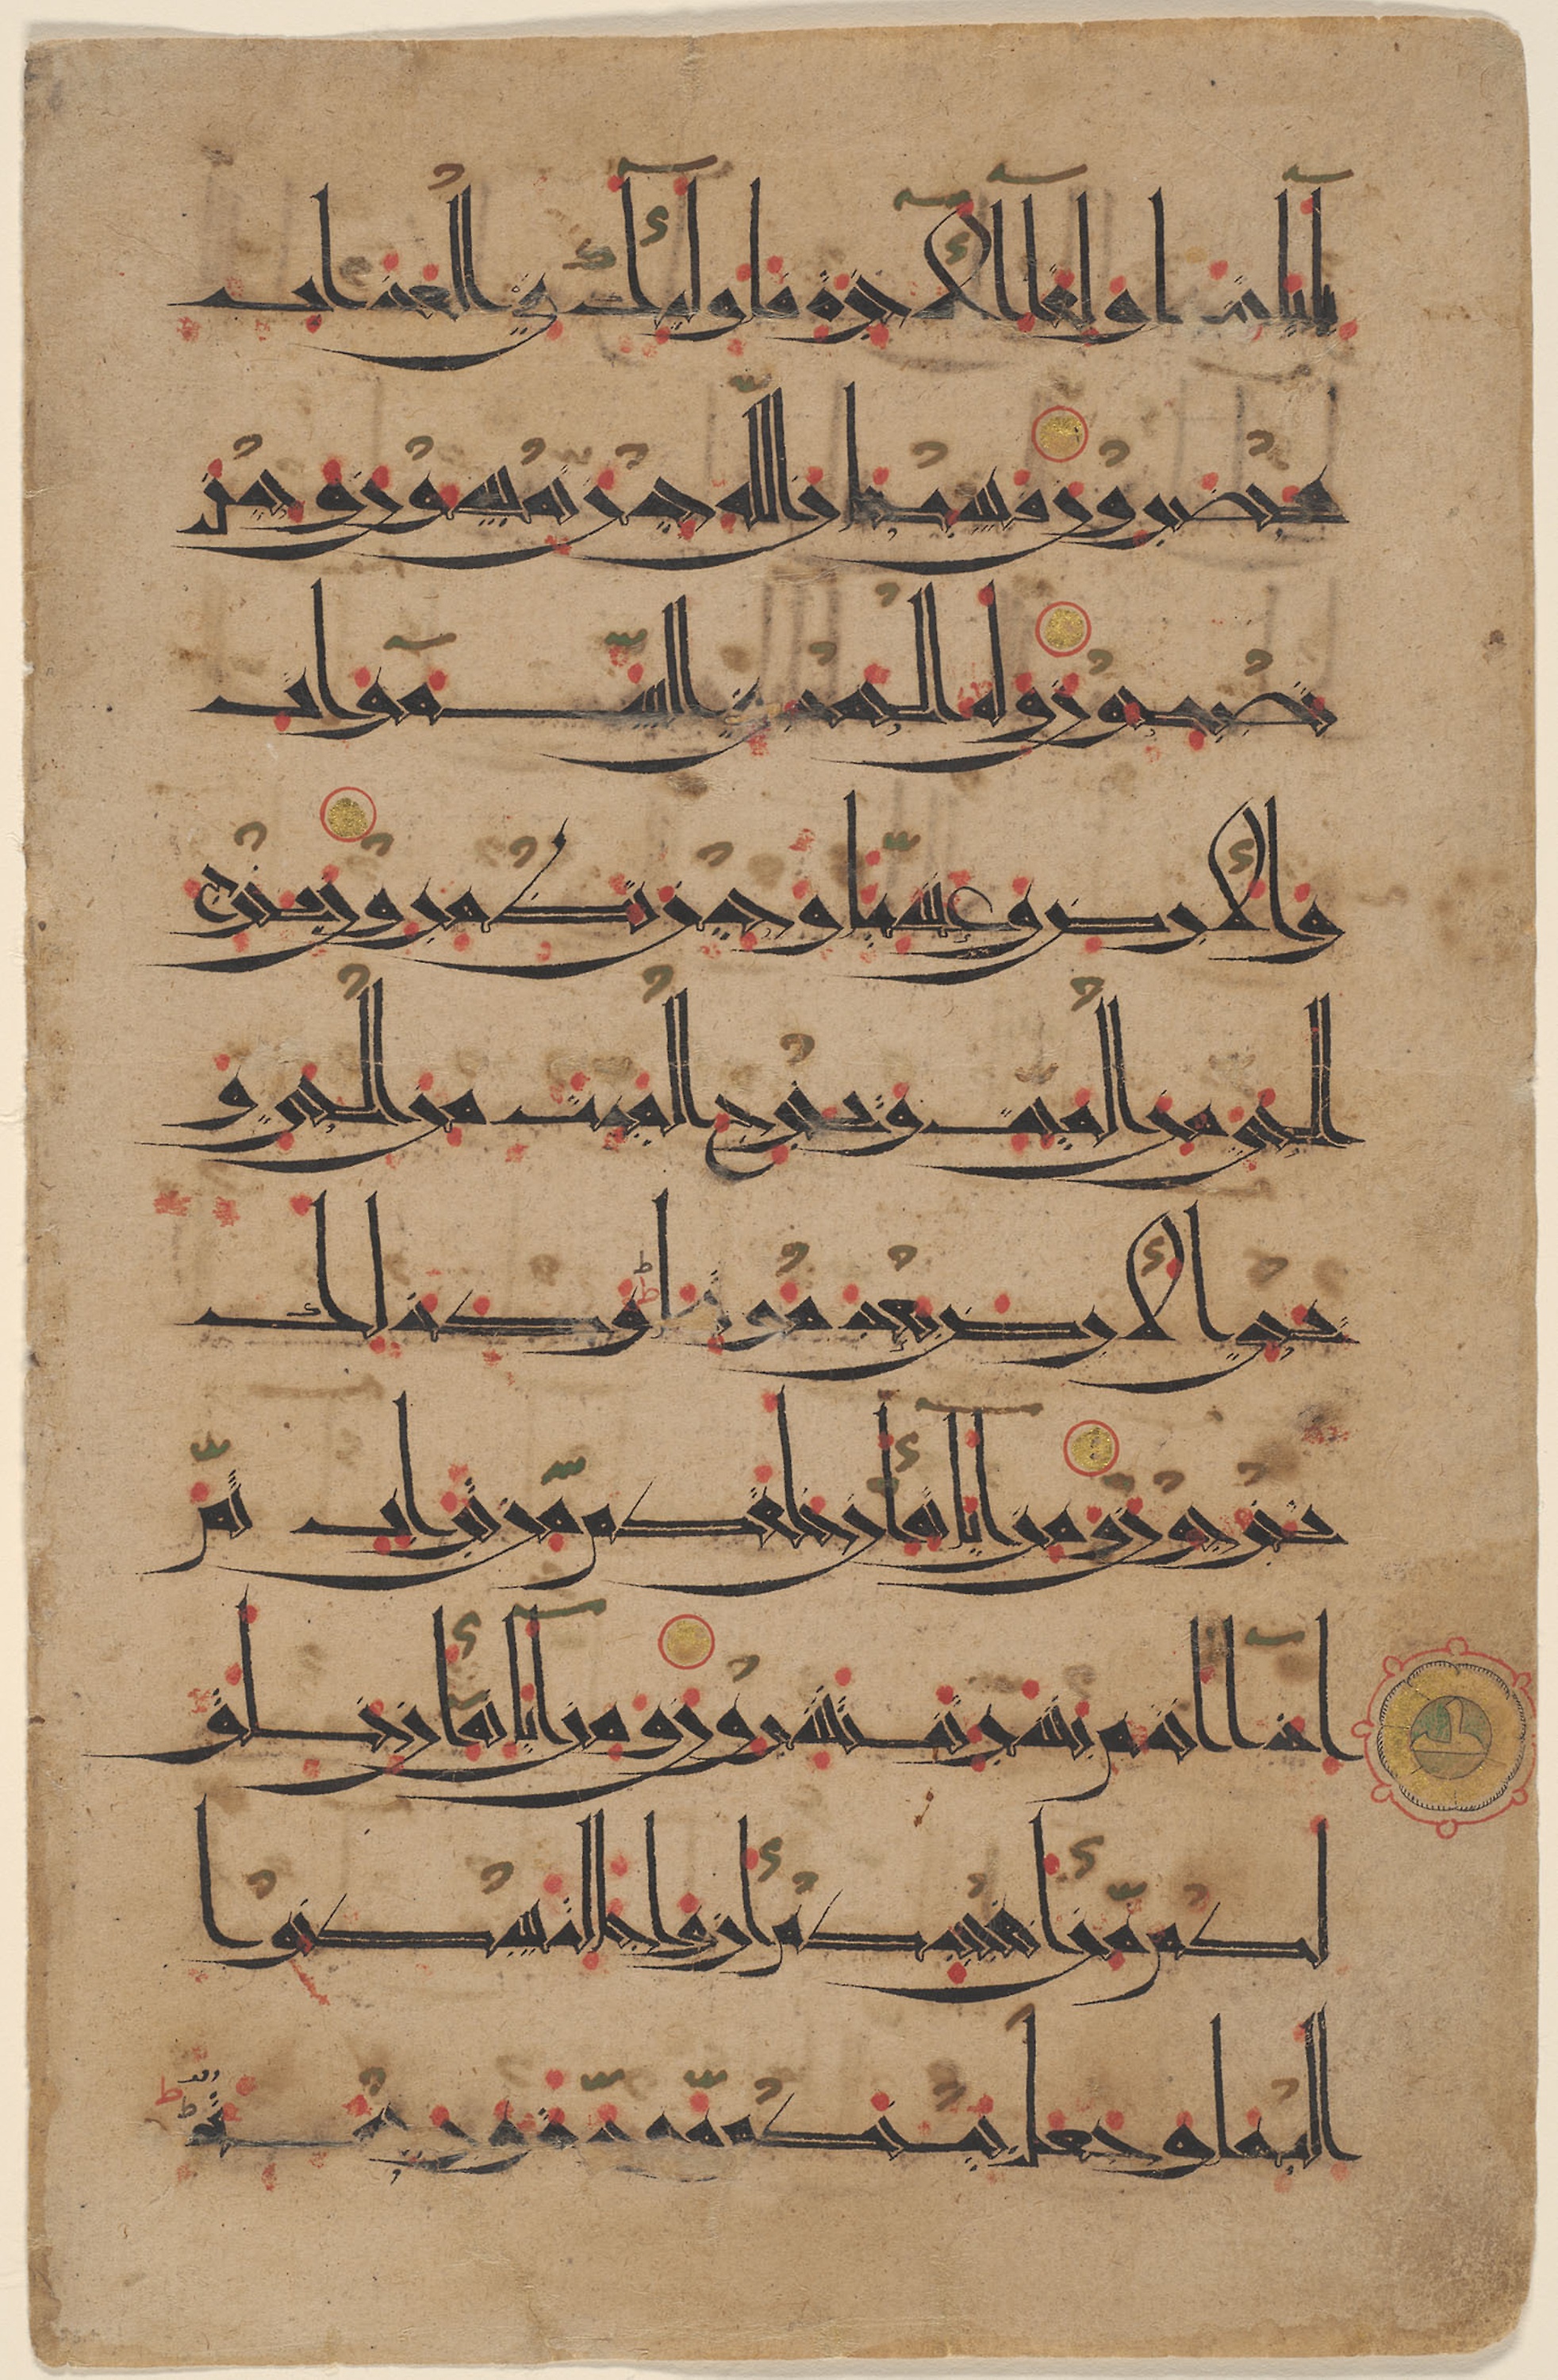 بِـَٔايَاتِنَا وَلِقَآءِ الْأٓخِرَةِ فَأُولَٰٓئِكَ فِي الْعَذَابِ
مُحْضَرُونَ فَسُبْحَانَ اللَّهِ حِينَ تُمْسُونَ وَحِينَ
تُصْبِحُونَ وَلَهُ الْحَمْدُ فِي السَّمَوَاتِ
وَالْأَرْضِ وَعَشِيًّا وَحِينَ تُظْهِرُونَ يُخْرِجُ
الْحَيَّ مِنَ الْمَيِّتِ وَيُخْرِجُ الْمَيِّتَ مِنَ الْحَيِّ وَ
يُحْيِي الْأَرْضَ بَعْدَ مَوْتِهَا وَكَذَلِكَ
تُخْرَجُونَ وَمِنْ آيَاتِهِ أَنْ خَلَقَكُمْ مِنْ تُرَابٍ ثُمَّ
إِذَا أَنْتُمْ بَشَرٌ تَنْتَشِرُونَ وَمِنْ آيَاتِهِ أَنْ خَلَقَ
لَكُمْ مِنْ أَنْفُسِكُمْ أَزْوَاجًا لِتَسْكُنُوا
إِلَيْهَا وَجَعَلَ بَيْنَكُمْ مَوَدَّةً وَرَحْمَةً